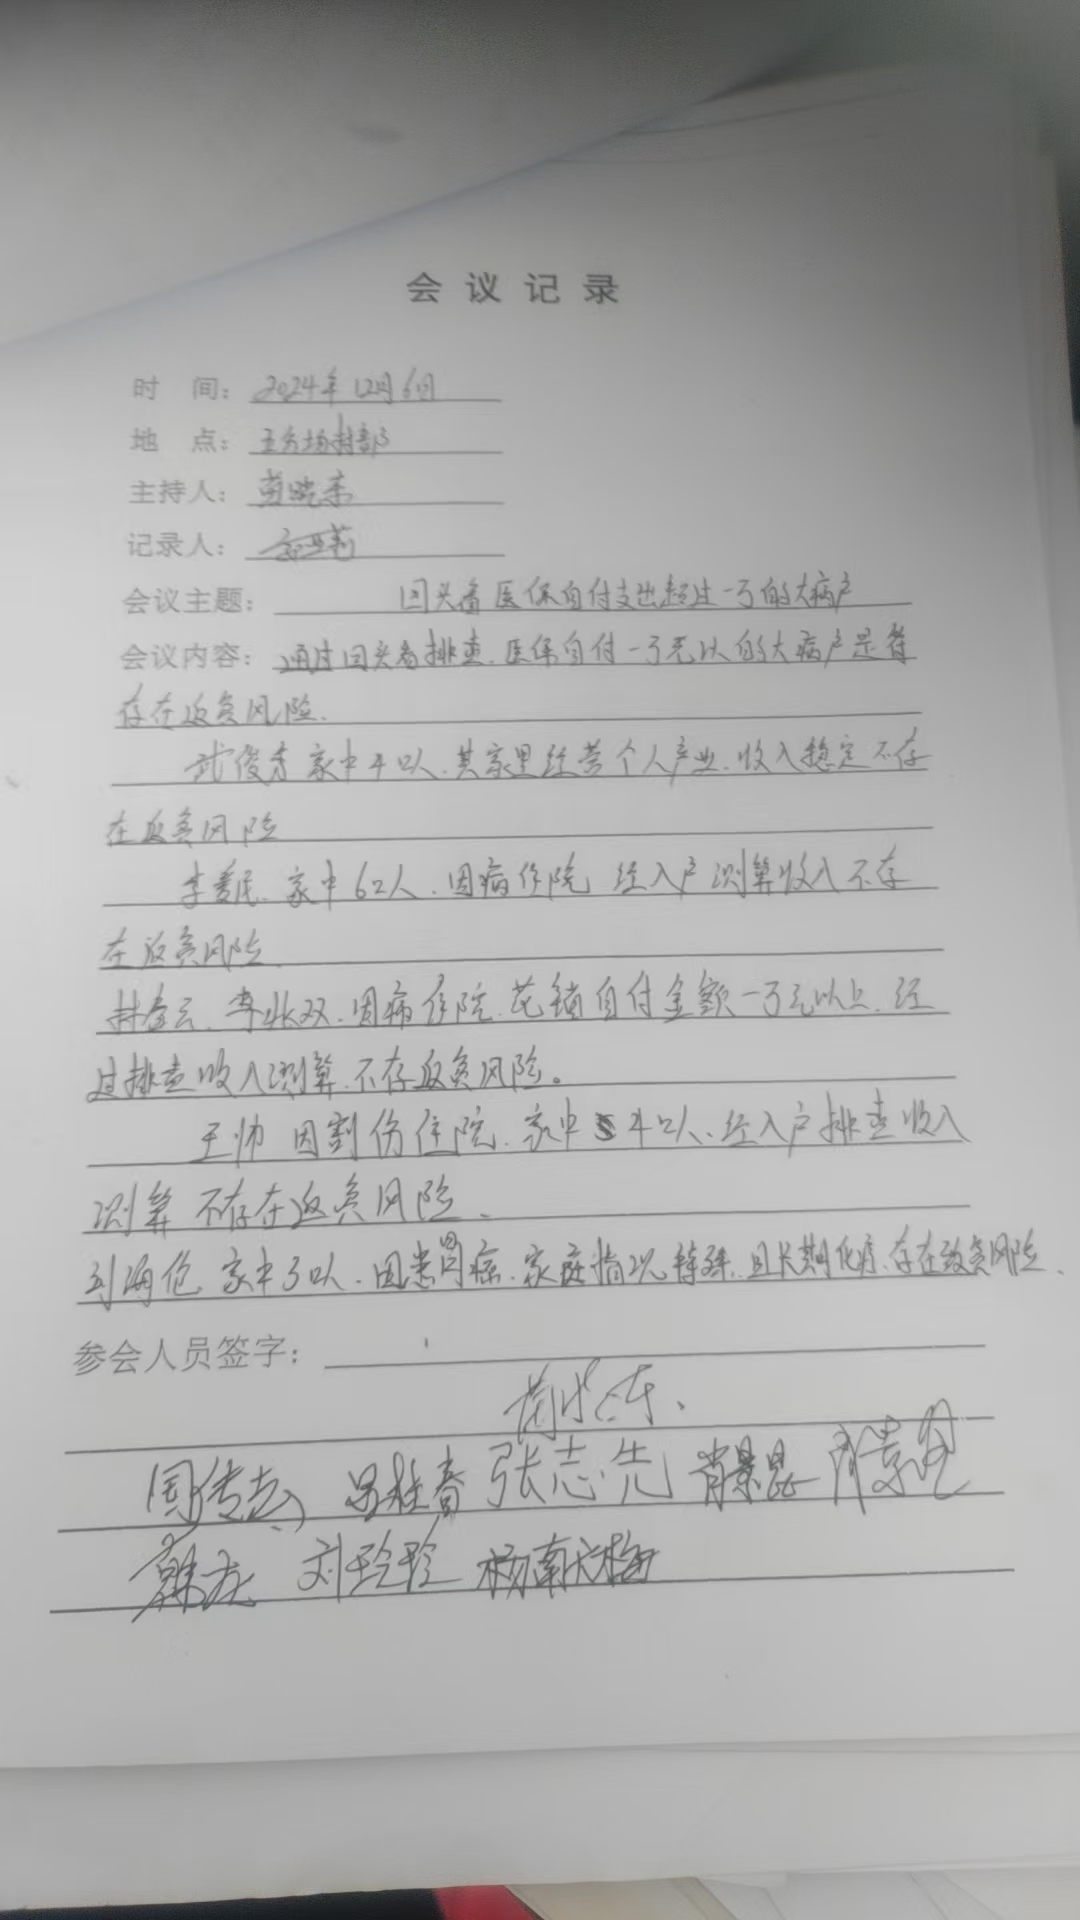 会议记录
时 间：2024年12月6日
地 点：王方场村部
主持人：晓东
记录人：
会议主题：回头看医保自付支出超过一万的大病户
会议内容：通过回头看排查.医保自付一万元以的大病户是否
存在返贫风险.
武俊 家中4口人.其家里经营个人产业.收入稳定不存
在返贫风险
李 民.家中6口人.因病住院 经入户测算收入不存
在返贫风险.
李 双.因病住院.花销自付金额一万元以上.经
过排查收入测算.不存返贫风险。
王帅 因割伤住院.家中4口人.经入户排查收入
测算 不存在返贫风险、
刘海 家中3口人.因患胃病.家庭情况特殊.且长期化疗.存在致贫风险.
参会人员签字：
张志先 肖景昆
刘玲玲